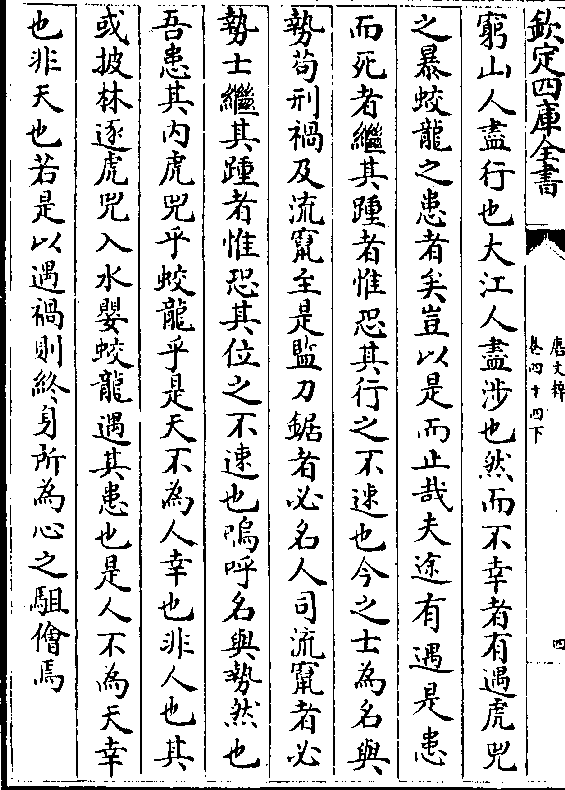 欽定四庫全書
唐文粹
卷四十四下
四
窮山人盡行也大江人盡涉也然而不幸者有遇虎兕
之暴蛟龍之患者矣豈以是而止哉夫途有遇是患
而死者繼其踵者惟恐其行之不速也今之士為名與
勢苟刑禍及流竄至是監刀鋸者必名人司流竄者必
勢士繼其踵者惟恐其位之不速也嗚呼名與勢然也
吾患其内虎兕乎蛟龍乎是天不為人幸也非人也其
或披林逐虎兕入水嬰蛟龍遇其患也是人不為天幸
也非天也若是以遇禍則終身所為心之駔儈焉